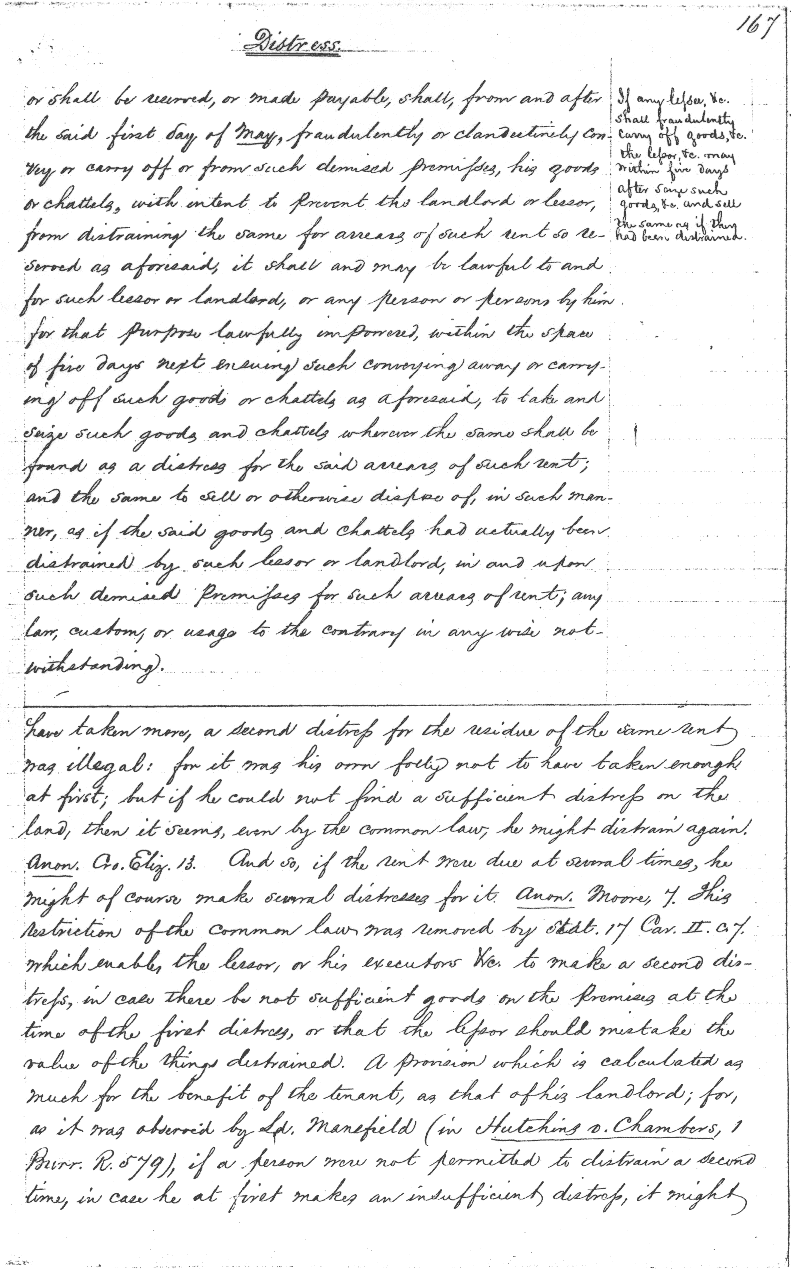 167
Distress.
or shall be reserved, or made payable, shall, from and after
the said first day of May, fraudulently or clandestinely con-
vey or carry off or from such demised premisses, his goods
or chattels, with intent to prevent the landlord or lessor,
from distraining the same for arrears of such rent so re-
served as aforesaid, it shall and may be lawful to and
for such lessor or landlord, or any person or persons by him
for that purpose lawfully impowered, within the space
of five days next ensuing such conveying away or carry-
ing off such goods or chattels as aforesaid, to take and
seize such goods and chattels wherever the same shall be
found as a distress for the said arrears of such rent;
and the same to sell or otherwise dispose of, in such man-
ner, as if the said goods and chattels had actually been
distrained by such lessor or landlord, in and upon
such demised premisses for such arrears of rent; any
law, custom, or usage to the contrary in any wise not-
withstanding.
If any lessee, &c.
shall fraudulently
carry off goods, &c.
the lessor, &c. may
within five days
after seize such
goods, &c. and sell
the same as if they
had been distrained.
have taken more, a second distress for the residue of the same rent
was illegal: for it was his own folly not to have taken enough
at first; but if he could not find a sufficient distress on the
land, then it seems, even by the common law, he might distrain again.
Anon. Cro. Eliz. 13. And so, if the rent were due at several times, he
might of course make several distresses for it. Anon. Moore, 7. This
restriction of the common law was removed by stat. 17 Car. II. c. 7.
which enables the lessor, or his executors &c. to make a second dis-
tress, in case there be not sufficient goods on the premises at the
time of the first distress, or that the lessor should mistake the
value of the things distrained. A provision which is calculated as
much for the benefit of the tenant, as that of his landlord; for,
as it was observed by Ld. Mansfield (in Hutchins v. Chambers, 1
Burr. R. 579), if a person were not permitted to distrain a second
time, in case he at first makes an insufficient distress, it might